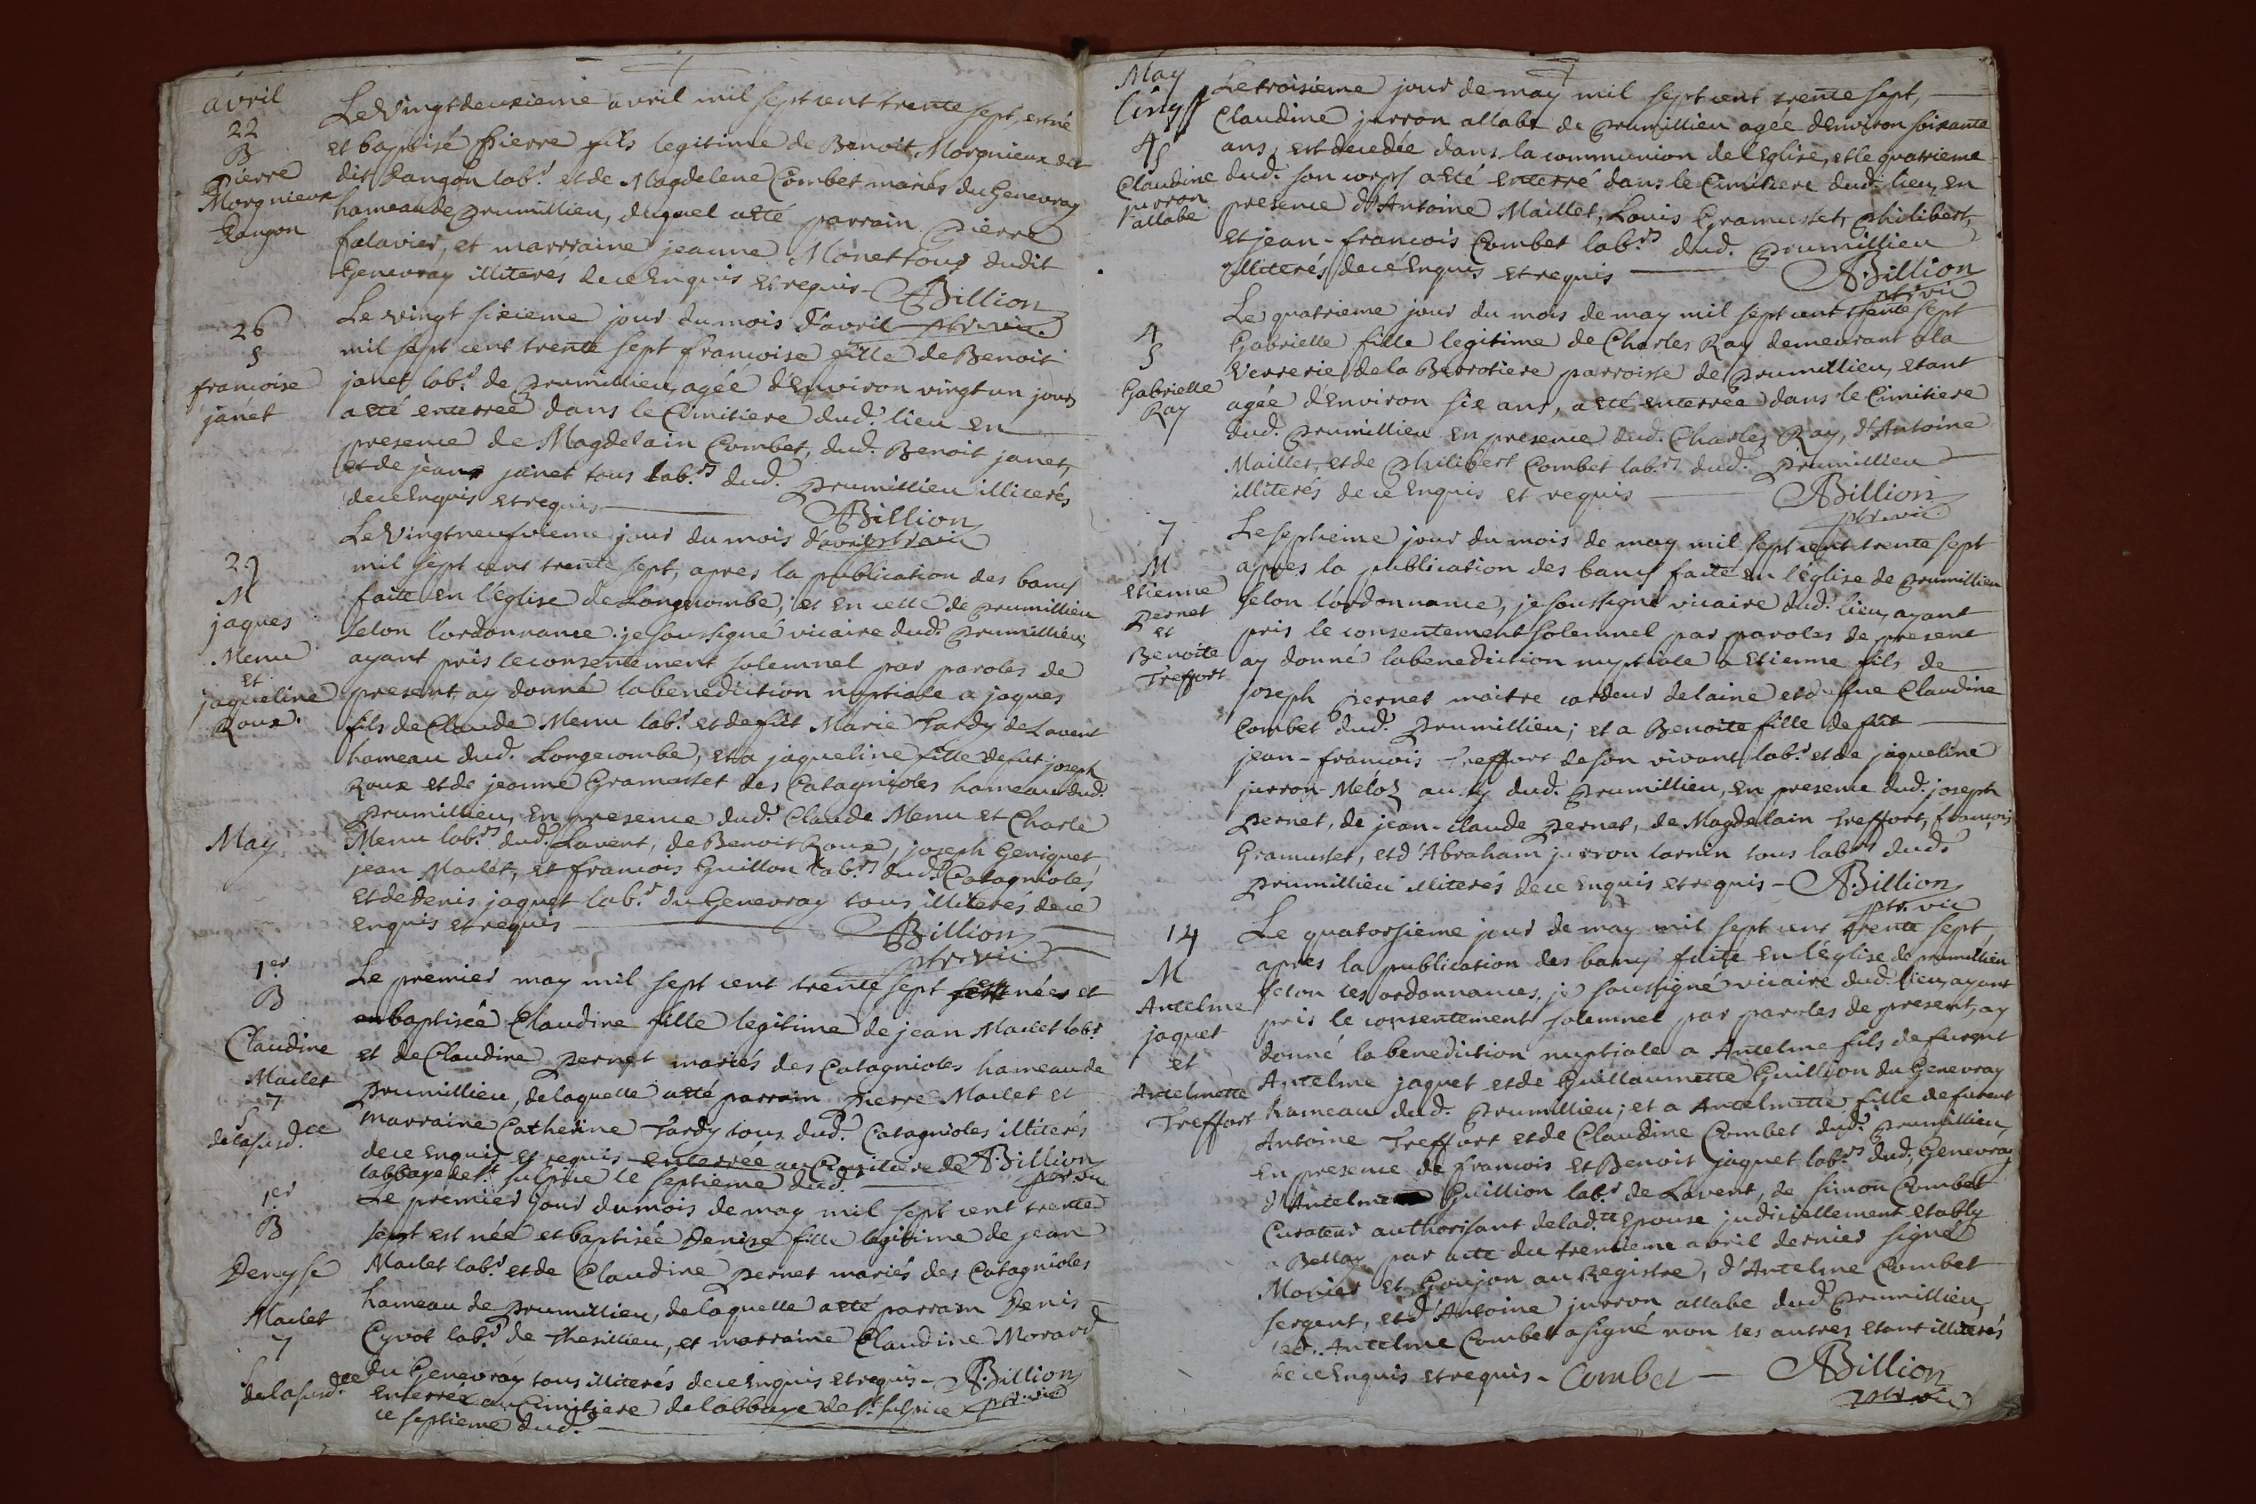 avril
22
B
Pierre
Morgnieux
Dangon
Le Vingtdeuxieme avril mil sept cent trente sept, est né
et baptisé Pierre fils legitime de Benoit Morgnieux dit
dit Dangon lab.r et de Magdelene Combet mariés du Genevray
hameau de Prumillien, duquel a eté parrain Pierre
falavier, et marrraine jeanne Monet tous dudit
Genevray illiteres de ce Enquis et requis - ABillion
ptr. vic.
26
S
francoise
janet
Le vingt sixieme jour du mois d'avril
mil sept cent trente sept francoise fille de Benoit
janet lab.r de Prumillieu, agée d'Environ vingt un jours
a eté enterreé dans le Cimitiere dud. lieu en
presence de Magdelain Combet, dud. Benoit janet,
et de jean janet tous lab.rs dud. Prumillieu illiterés
de ce Enquis et requis ABillion
ptr. vic
29
M
jaques
Menu
et
jaqueline
Roux.
Le Vingtneufvieme jour du mois d'avril
mil sept cent trente sept, apres la publication des bancs
faite en l'église de Longecombe, et en celle de Prumillieu
selon l'ordonnance. je soussigné vicaire dud. Prumillieu,
ayant pris le consentement solemnel par paroles de
present ay donné la benediction nuptiale a jaques
fils de Claude Menu lab.r et de fût Marie Tardy de Lavent
hameau dud. Longecombe, et a jaqueline fille de fut joseph
Roux et de jeanne Gramusset des Catagnioles hameau dud.
Prumillieu, En presence dud. Claude Menu et Charle
Menu lab.rs dud. Lavent, de Benoit Roux, joseph Geniquet
jean Maclet, et francois Guillon lab.rs dud. Catagnioles
et de Denis jaquet lab.r du Genevray tous illiterés de ce
enquis et requis ABillion
ptr. vic
May
1er
B
Claudine
Maclet
7
S
de la susd.te
Le premier may mil sept cent trente sept est née et
baptisée Claudine fille legitime de jean Maclet lab.r
et de Claudine Pernet mariés des Catagnioles hameau de
Prumillieu, de laquelle a eté parrain Pierre Maclet et
marraine Catherine Tardy tous dud. Catagnioles illiterés
de ce Enquis et requis enterrée au Cimitiere de ABillion
l'abbaye de St. sulpice le septieme dud. ptr. vic
1er
B
Denyse
Maclet
7
S
de la susd.te
Le premier jour du mois de may mil sept cent trente
sept est née et baptisée Denise fille legitime de jean
Maclet lab.r et de Claudine Pernet mariés des Catagnioles
hameau de Prumillieu, de laquelle a eté parrain Denis
Cyvot lab.r de thesillieu, et marraine Claudine Morard
du Genevray tous illiterés de ce Enquis et requis - ABillion
Enterrée au Cimitiere de l'abbaye de St. sulpice ptr. vic
ce septieme dud.
May
4
S
Claudine
jurron
l'allabe
Le troisieme jour de may mil sept cent trente sept,
Claudine jurron allabe de Prumillieu agée d'Environ soixante
ans, est decedée dans la communion de l'Eglise, et le quatrieme
dud. son corps a eté enterré dans le Cimitiere dud. lieu, en
presence d'Antoine Maillet, Louis Gramusset, Philibert,
et jean-francois Combet lab.rs dud. Prumillieu
illiterés de ce Enquis et requis ABillion
ptr. vic
4
S
Gabrielle
Ray
Le quatrieme jour du mois de may mil sept cent trente sept
Gabrielle fille legitime de Charles Ray demeurant a la
Verrerie de la Berrotiere parroisse de Prumillieu, etant
agée d'Environ six ans, a eté enterrée dans le Cimitiere
dud. Prumillieu en presence dud. Charles Ray, d'Antoine
Maillet, et de Philibert Combet lab.rs dud. Prumillieu
illiterés de ce Enquis et requis ABillion
ptr. vic.
7
M
Etienne
Pernet
et
Benoite
Treffort
Le septieme jour du mois de may mil sept cent trente sept
apres la publication des bancs faite en l'église de Prumillieu
selon l'ordonnance, je soussigné vicaire dud. lieu, ayant
pris le consentement solemnel par paroles de present
ay donné la benediction nuptiale a Etienne fils de
joseph Pernet maitre cardeur de laine et de fue Claudine
Combet dud. Prumillieu; et a Benoite fille de fût
jean-francois Treffort de son vivant lab.r et de jaqueline
jurron-Méloz aussy dud. Prumillieu, En presence dud. joseph
Pernet, de jean-claude Pernet, de Magdelain Treffort, françois
Gramusset, et d'Abraham jurron tous lab.rs dud.
Prumillieu illiterés de ce Enquis et requis - ABillion
ptr. vic
14
M
Antelme
jaquet
et
Antelmette
Treffort
Le quatorsieme jour de may mil sept cent trente sept,
apres la publication des bancs faite en l'église de Prumillieu
selon les ordonnances, je soussigné vicaire dud. lieu, ayant
pris le consentement solemnel par paroles de present, ay
donné la benediction nuptiale a Antelme fils de furent
Antelme jaquet et de Guillaumette Guillion du Genevray
hameau dud. Prumillieu; et a Antelmette fille de furent
Antoine Treffort et de Claudine Combet dud. Prumillieu,
En presence de francois et Benoit jaquet lab.rs dud. Genevray
d'Antelme Guillion lab.r de Lavent, de simon Combet
Curateur authorisant de lad.te Epouse judiciellement etably
a Bellay par acte du trentieme avril dernier signé
Monier et Goujon au Registre, d'Antelme Combet
sergent, et d'Antoine jurron allabe dud. Prumillieu,
led. Antelme Combet a signé non les autres etant illiterés
de ce Enquis et requis - Combet - ABillion
ptr. vic